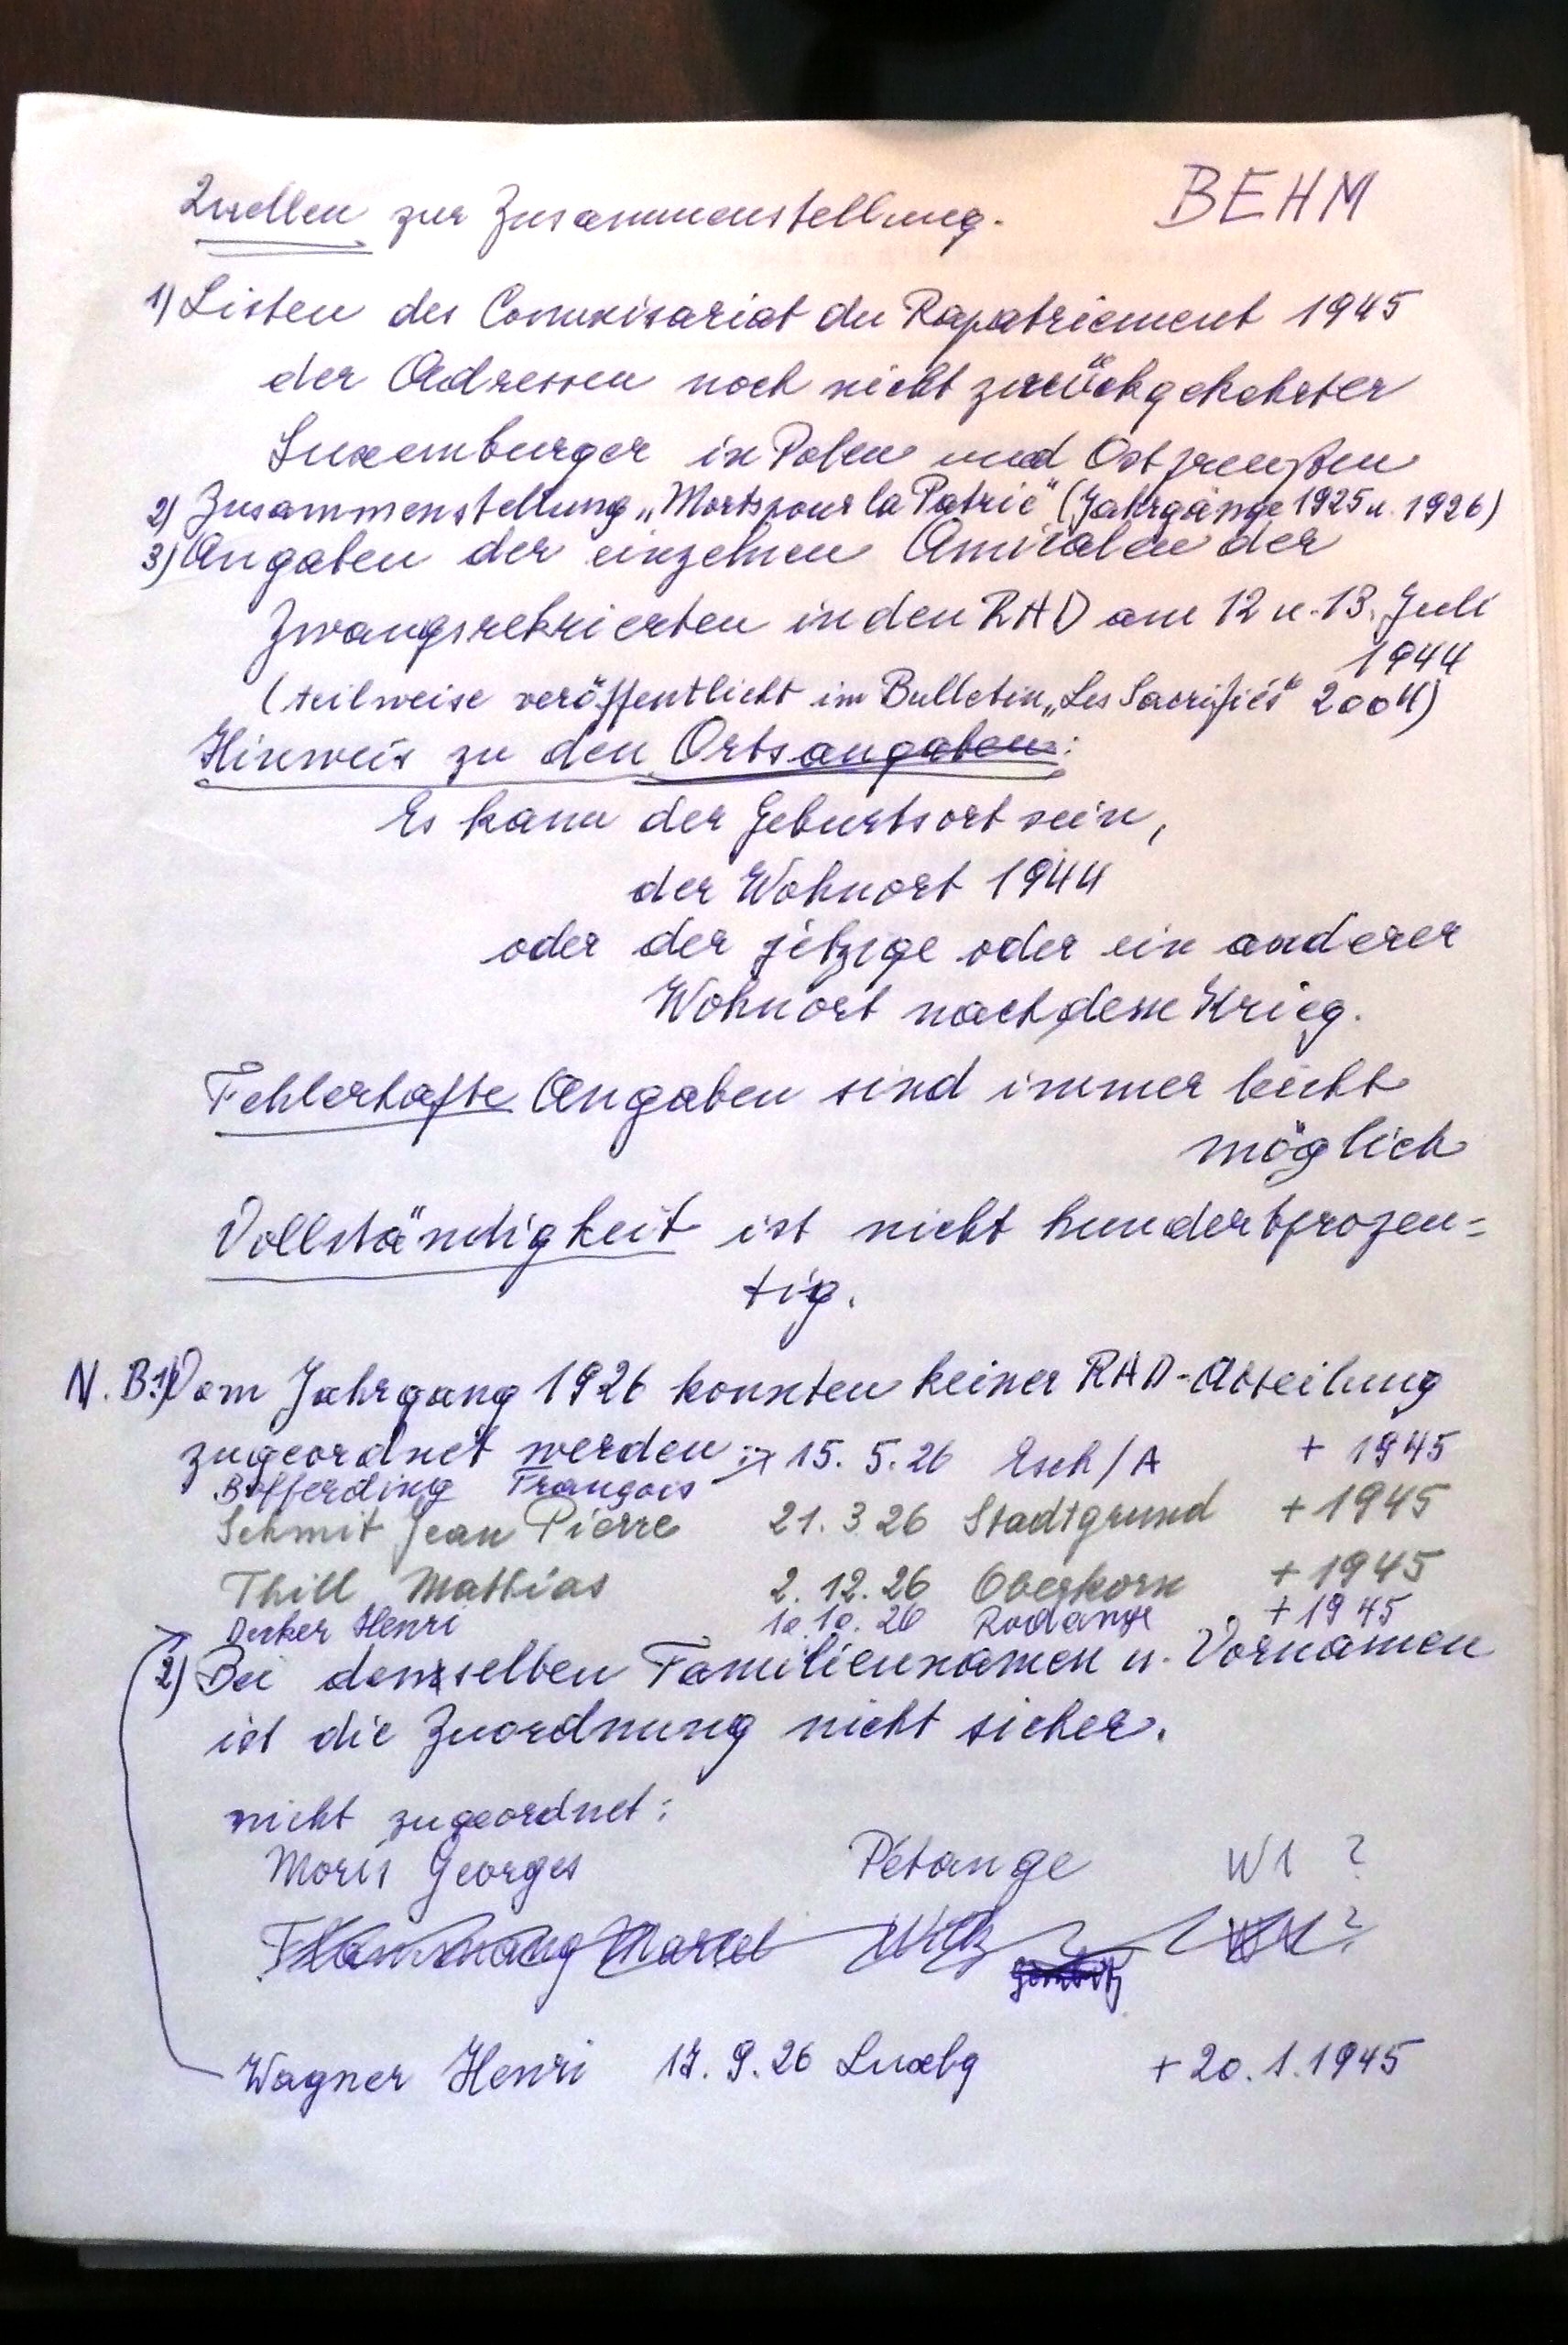 Quellen zur Zusammenstellung. BEHM
1) Listen des Commisariat du Rapatriement 1945
der Adressen noch nicht zurückgekehrter
Luxemburger in Polen und Ostpreußen
2) Zusammenstellung „Morts pour la Patrie" (Jahrgänge 1925 u. 1926)
3) Angaben der einzelnen Amicalen der
Zwangsrekrierten in den RAD am 12 u. 13. Juli
1944
(teilweise veröffentlicht im Bulletin „Les Sacrifiés" 2004)
Hinweis zu den Ortsangaben:
Es kann der Geburtsort sein,
der Wohnort 1944
oder der jetzige oder ein anderer
Wohnort nach dem Krieg.
Fehlerhafte Angaben sind immer leicht
möglich
Vollständigkeit ist nicht hundertprozen=
tig.
N. B. 1) Vom Jahrgang 1926 konnten keiner RAD-Abteilung
zugeordnet werden:
Bofferding François 15. 5. 26 Esch/A + 1945
Schmit Jean Pierre 21. 3 26 Stadtgrund + 1945
Thill Mathias 2. 12. 26 Oberkorn + 1945
Decker Henri 10. 10. 26 Rodange + 1945
2) Bei demselben Familiennamen u. Vornamen
ist die Zuordnung nicht sicher.
nicht zugeordnet:
Moris Georges Pétange W1 ?
Marcel Wiltz ?
Wagner Henri 17. 9. 26 Luxbg + 20. 1. 1945